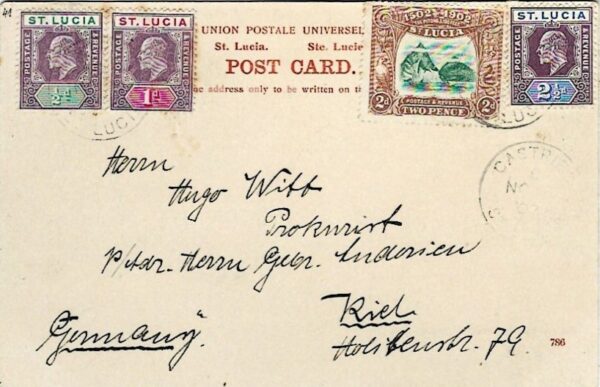 41
ST. LUCIA
POSTAGE & REVENUE
½d
ST. LUCIA
POSTAGE & REVENUE
1d
UNION POSTALE UNIVERSEL
St. Lucia. Ste. Lucie
POST CARD.
he address only to be written on t
1502-1902
ST. LUCIA
2d POSTAGE & REVENUE 2d
TWO PENCE
ST. LUCIA
POSTAGE & REVENUE
2½d
LUCIA
LUC
CASTRI
NO
Herrn
Hugo Witt
Prokurist
p/Adr. Herrn Gebr. Andersen
Kiel
Germany
Holstenstr. 79.
786